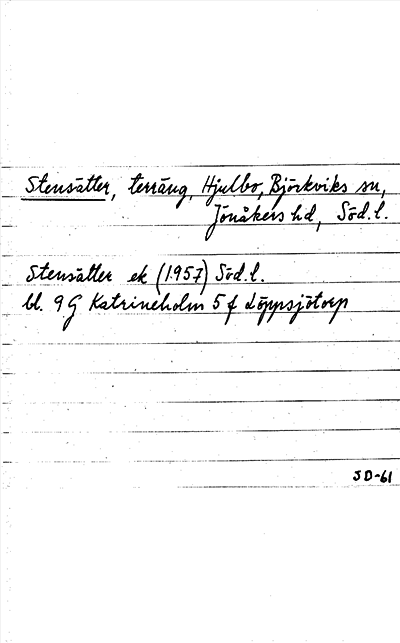 Stensätter, terräng, Hjulbo, Björkviks sn,
Jönåkers hd, Söd.l.
Stensätter ek (1957) Söd.l.
bl. 9 G Katrineholm 5 f Löppsjötorp
SD-61